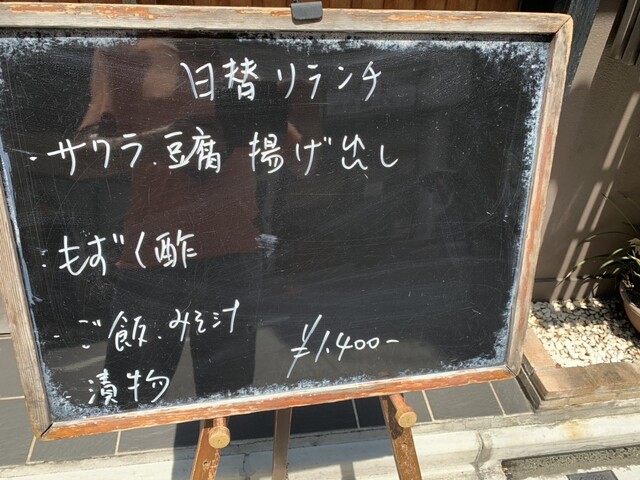 日替リランチ
・サワラ.豆腐 揚げ出し
・もずく酢
・ご飯.みそ汁
¥1.400-
・漬物